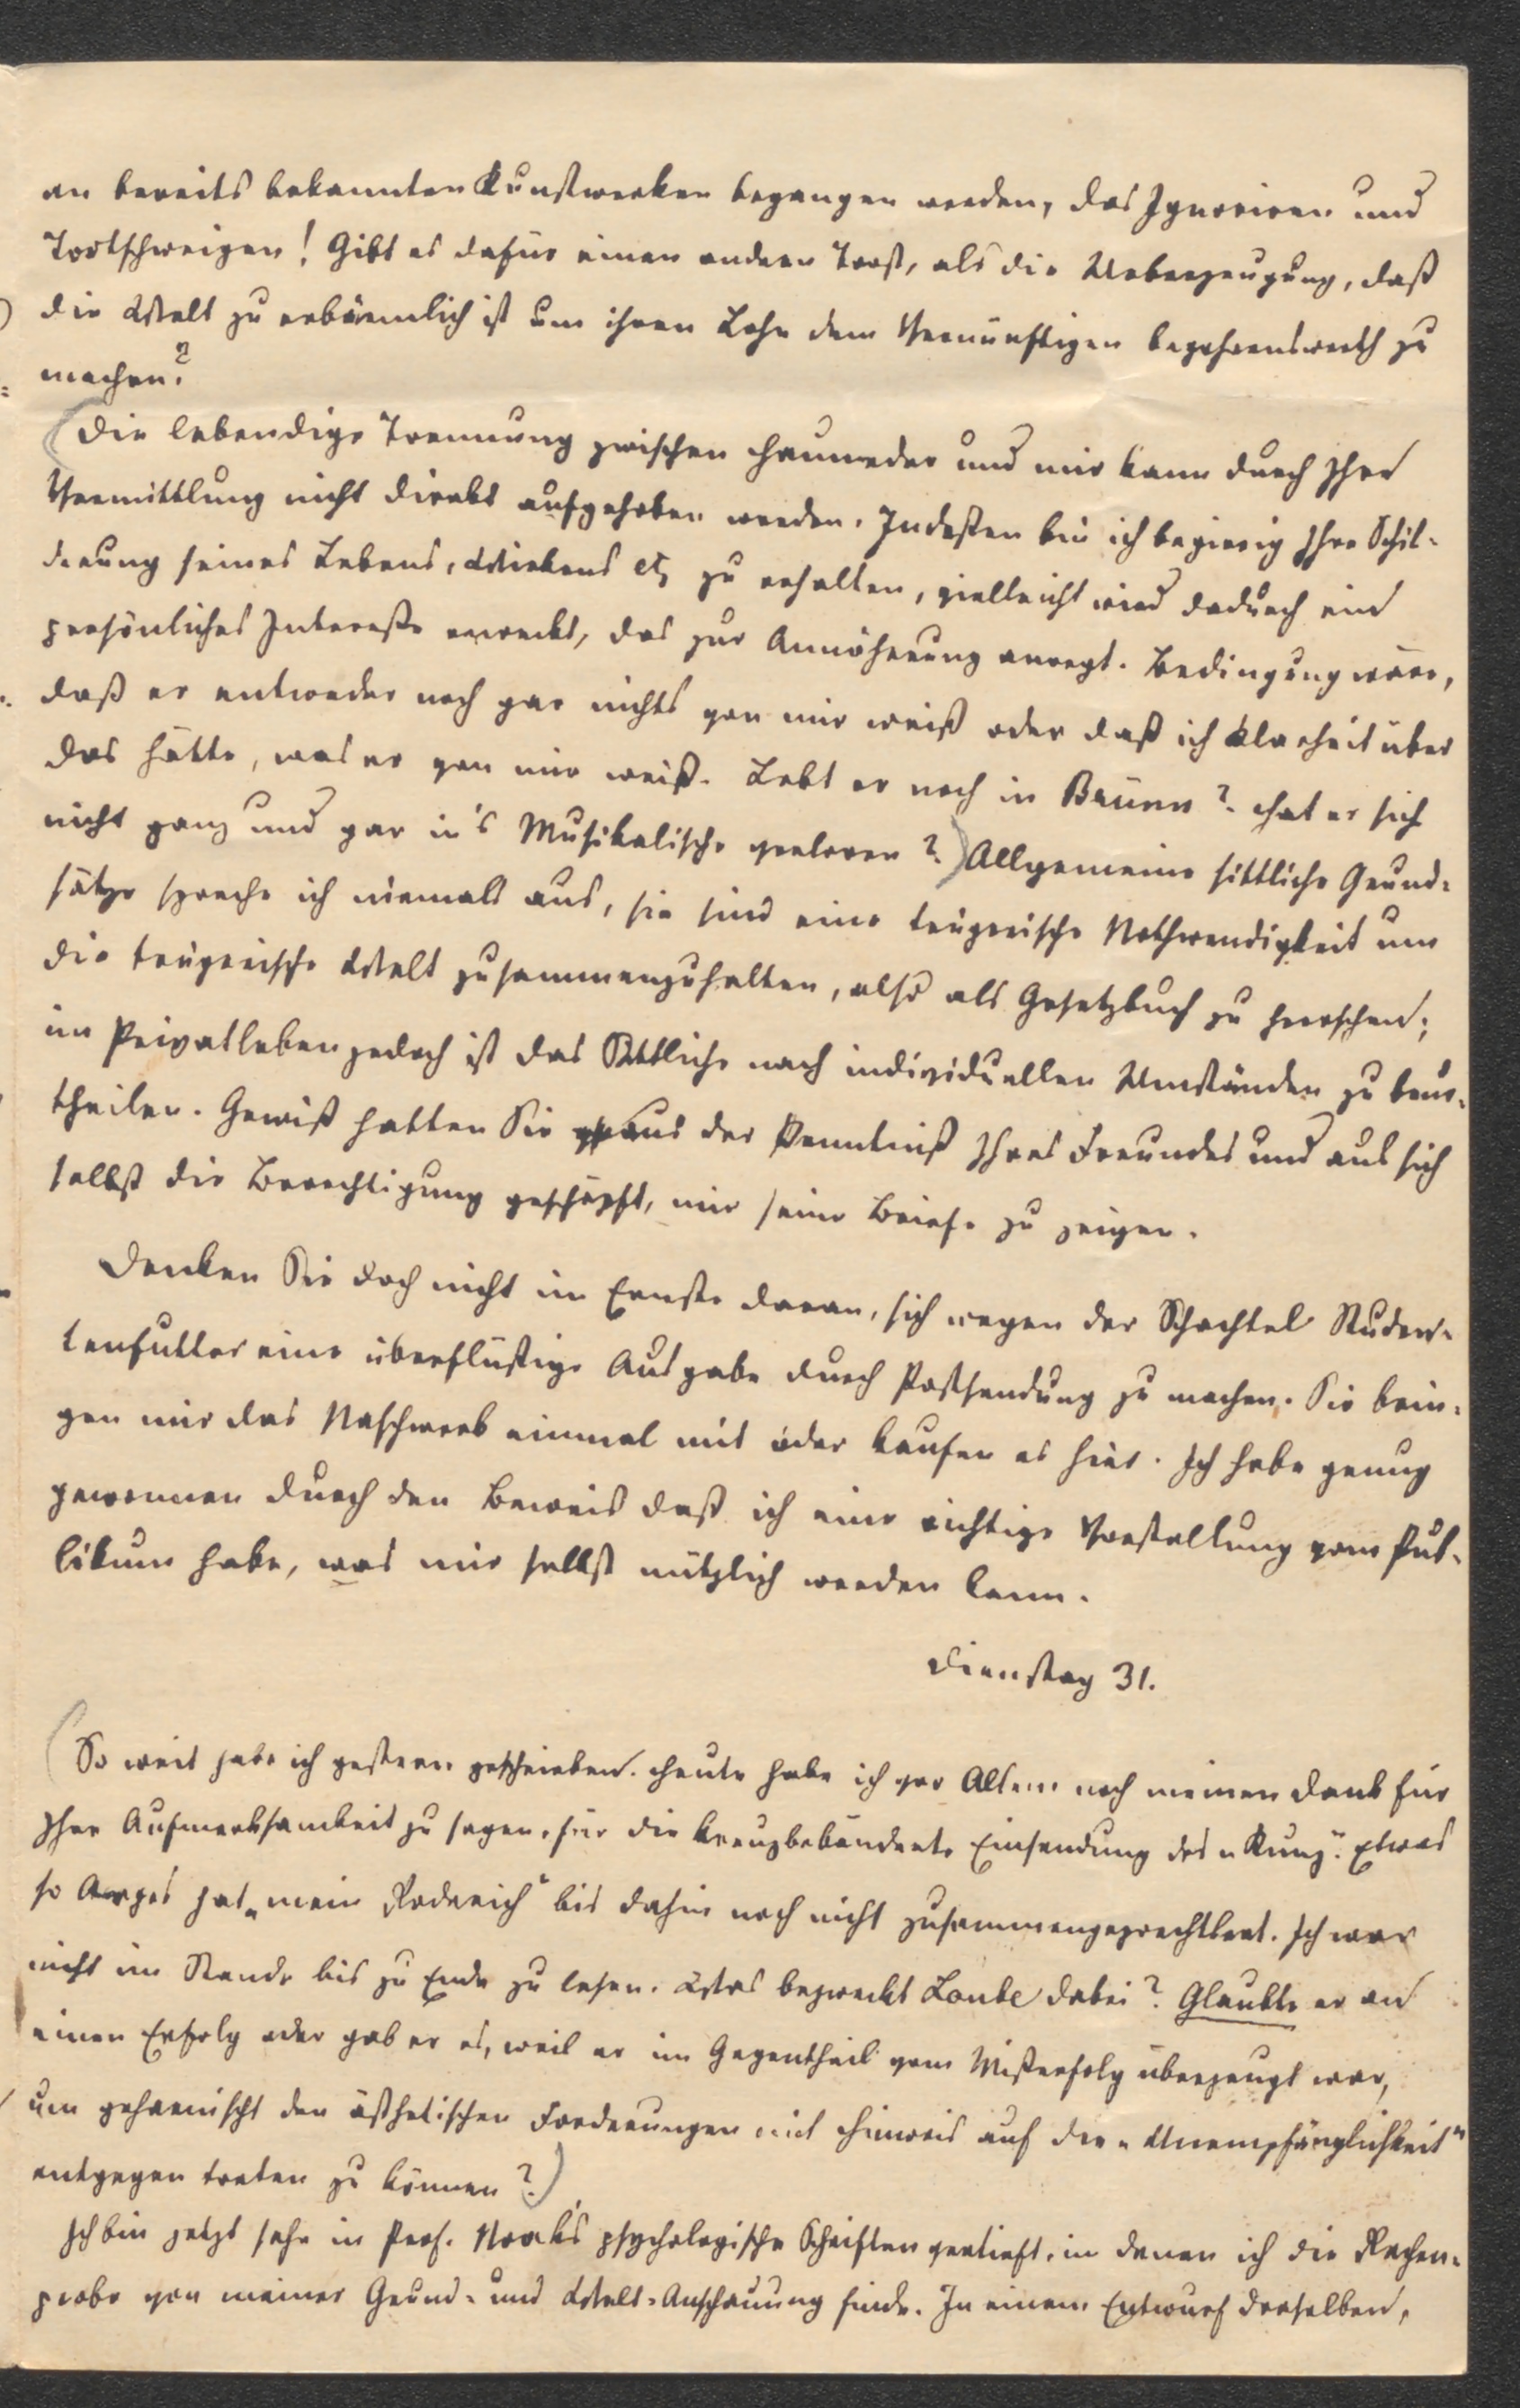 an bereits bekannten Kunstwerken begangen werden, das Ignoriren und
Todtschweigen! Gibt es dafür einen andern Trost, als die Ueberzeugung, daß
die Welt zu erbärmlich ist um ihren Lohn dem Vernünftigen begehrenswerth zu
machen?
(Die lebendige Trennung zwischen Haunreder und mir kann durch Ihre
Vermittlung nicht direkt aufgehoben werden. Indessen bin ich begierig Ihre Schil-
derung seines Lebens, Wirkens etz zu erhalten, vielleicht wird dadurch ein
persönliches Interesse erweckt, das zur Annäherung anregt. Bedingung wäre,
daß er entweder noch gar nichts von mir weiß oder daß ich Klarheit über
das hätte, was er von mir weiß. Lebt er noch in Brünn? Hat er sich
nicht ganz und gar in's Musikalische verloren?) Allgemeine sittliche Grund-
sätze spreche ich niemals aus, sie sind eine trügerische Nothwendigkeit um
die trügerische Welt zusammenzuhalten, also als Gesetzbuch zu herrschen;
im Privatleben jedoch ist das Sittliche nach individuellen Umständen zu beur-
theilen. Gewiß hatten Sie aus der Kenntniß Ihres Freundes und aus sich
selbst die Berechtigung geschöpft, mir seine Briefe zu zeigen.
Denken Sie doch nicht im Ernste daran, sich wegen der Schachtel Studen-
tenfutter eine überflüssige Ausgabe durch Postsendung zu machen. Sie brin-
gen mir das Naschwerk einmal mit oder kaufen es hier. Ich habe genug
gewonnen durch den Beweis daß ich eine richtige Vorstellung vom Pub-
likum habe, was mir selbst nützlich werden kann.
Dienstag 31.
(So weit habe ich gestern geschrieben. Heute habe ich vor Allem noch meinen Dank für
Ihre Aufmerksamkeit zu sagen, für die kreuzbebänderte Einsendung des „Kunz". Etwas
so Arges hat „mein Roderich" bis dahin noch nicht zusammengeprechtlert. Ich war
nicht im Stande bis zu Ende zu lesen. Was bezweckt Laube dabei? Glaubte er an
einen Erfolg oder gab er es, weil er im Gegentheil vom Mißerfolg überzeugt war,
um geharnischt den ästhetischen Forderungen mit Hinweis auf die „Unempfänglichkeit"
entgegen treten zu können?)
Ich bin jetzt sehr in Prof. Noak's psychologische Schriften vertieft, in denen ich die Rechen-
probe von meiner Grund- und Welt-Anschauung finde. In einem Entwurf derselben,